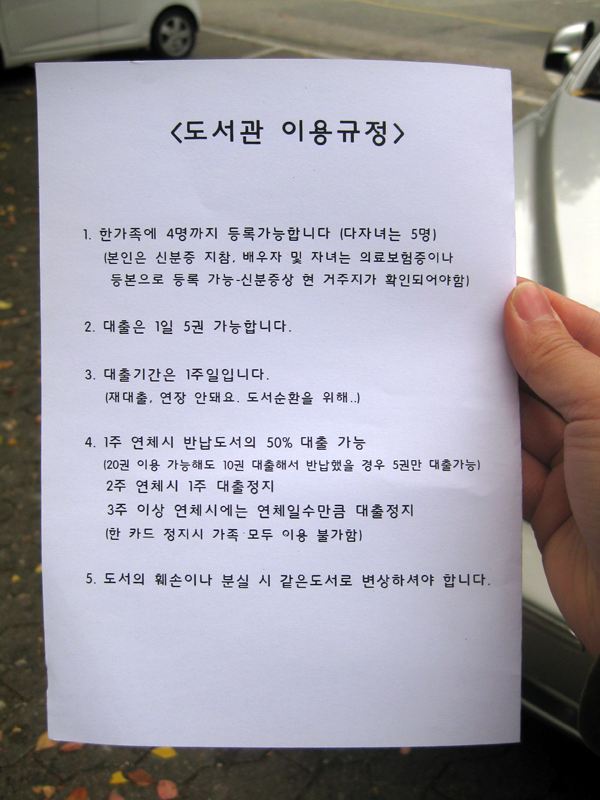 <도서관 이용규정>
1. 한가족에 4명까지 등록가능합니다 (다자녀는 5명)
(본인은 신분증 지참, 배우자 및 자녀는 의료보험증이나
등본으로 등록 가능-신분증상 현 거주지가 확인되어야함)
2. 대출은 1일 5권 가능합니다.
3. 대출기간은 1주일입니다.
(재대출, 연장 안돼요. 도서순환을 위해..)
4. 1주 연체시 반납도서의 50% 대출 가능
(20권 이용 가능해도 10권 대출해서 반납했을 경우 5권만 대출가능)
2주 연체시 1주 대출정지
3주 이상 연체시에는 연체일수만큼 대출정지
(한 카드 정지시 가족 모두 이용 불가함)
5. 도서의 훼손이나 분실 시 같은도서로 변상하셔야 합니다.